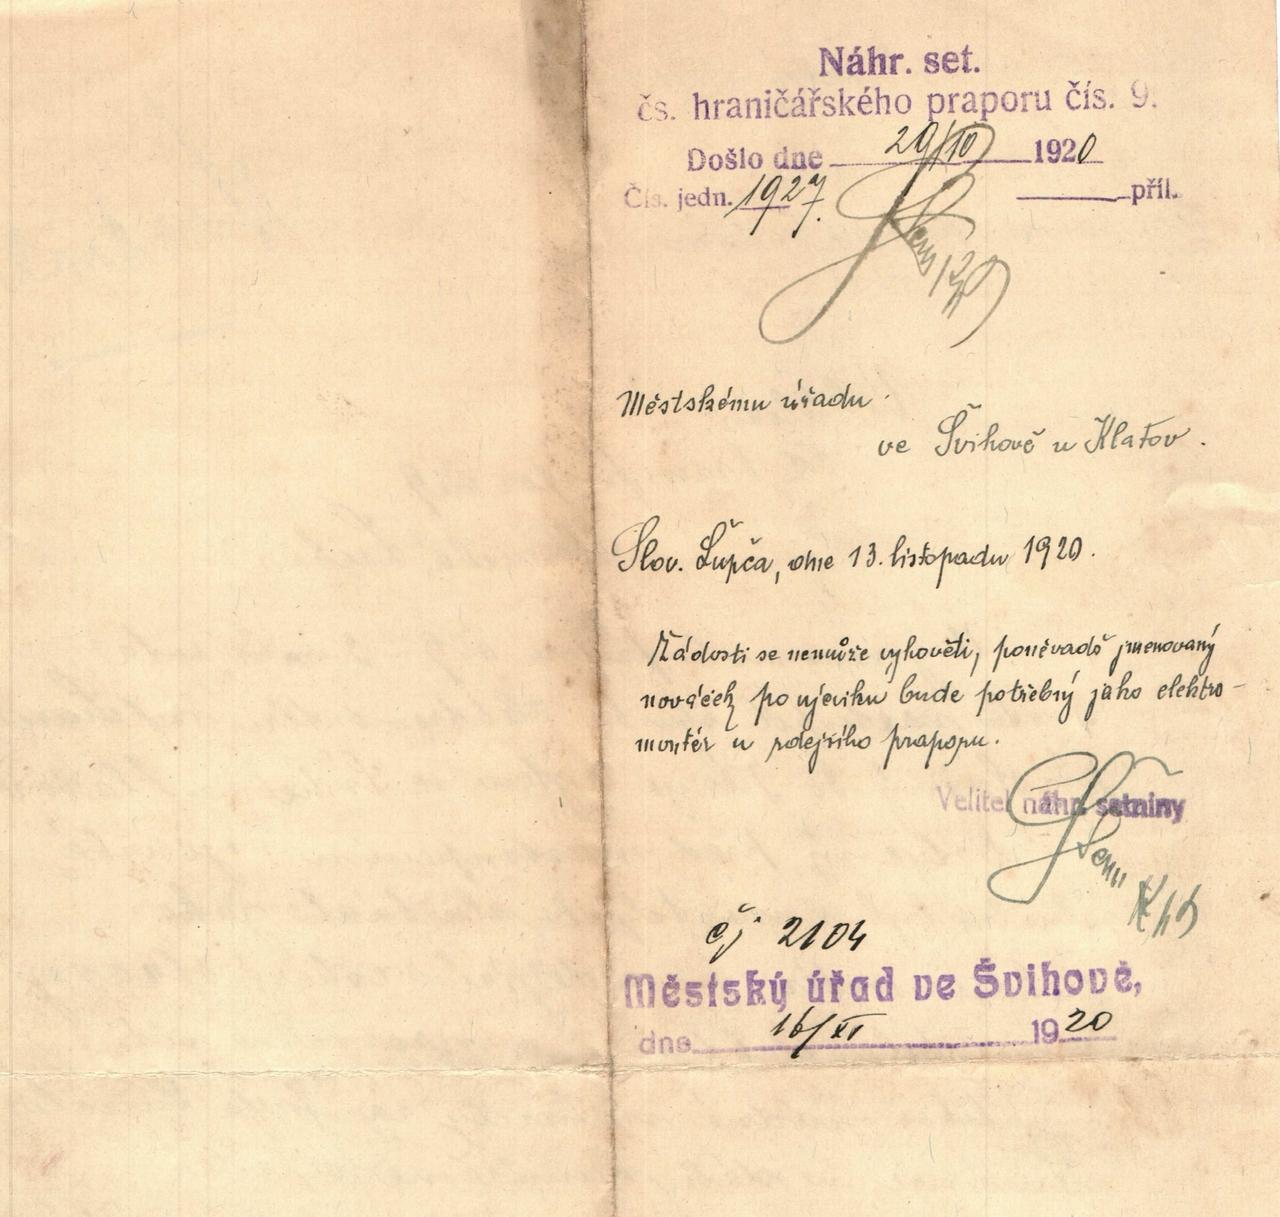 Náhr. set.
čs. hraničářského praporu čís. 9.
Došlo dne 29/10 1920
Čís. jedn. 1927. příl.
Městskému úřadu
ve Švihově u Klatov.
Slov. Ľupča, dne 13. listopadu 1920.
Žádosti se nemůže vyhověti, poněvadž jmenovaný
nováček po výcviku bude potřebný jako elektro-
montér u zdejšího praporu.
Velitel náhr. setniny
čj. 2104
Městský úřad ve Švihově,
dne 16/XI 1920